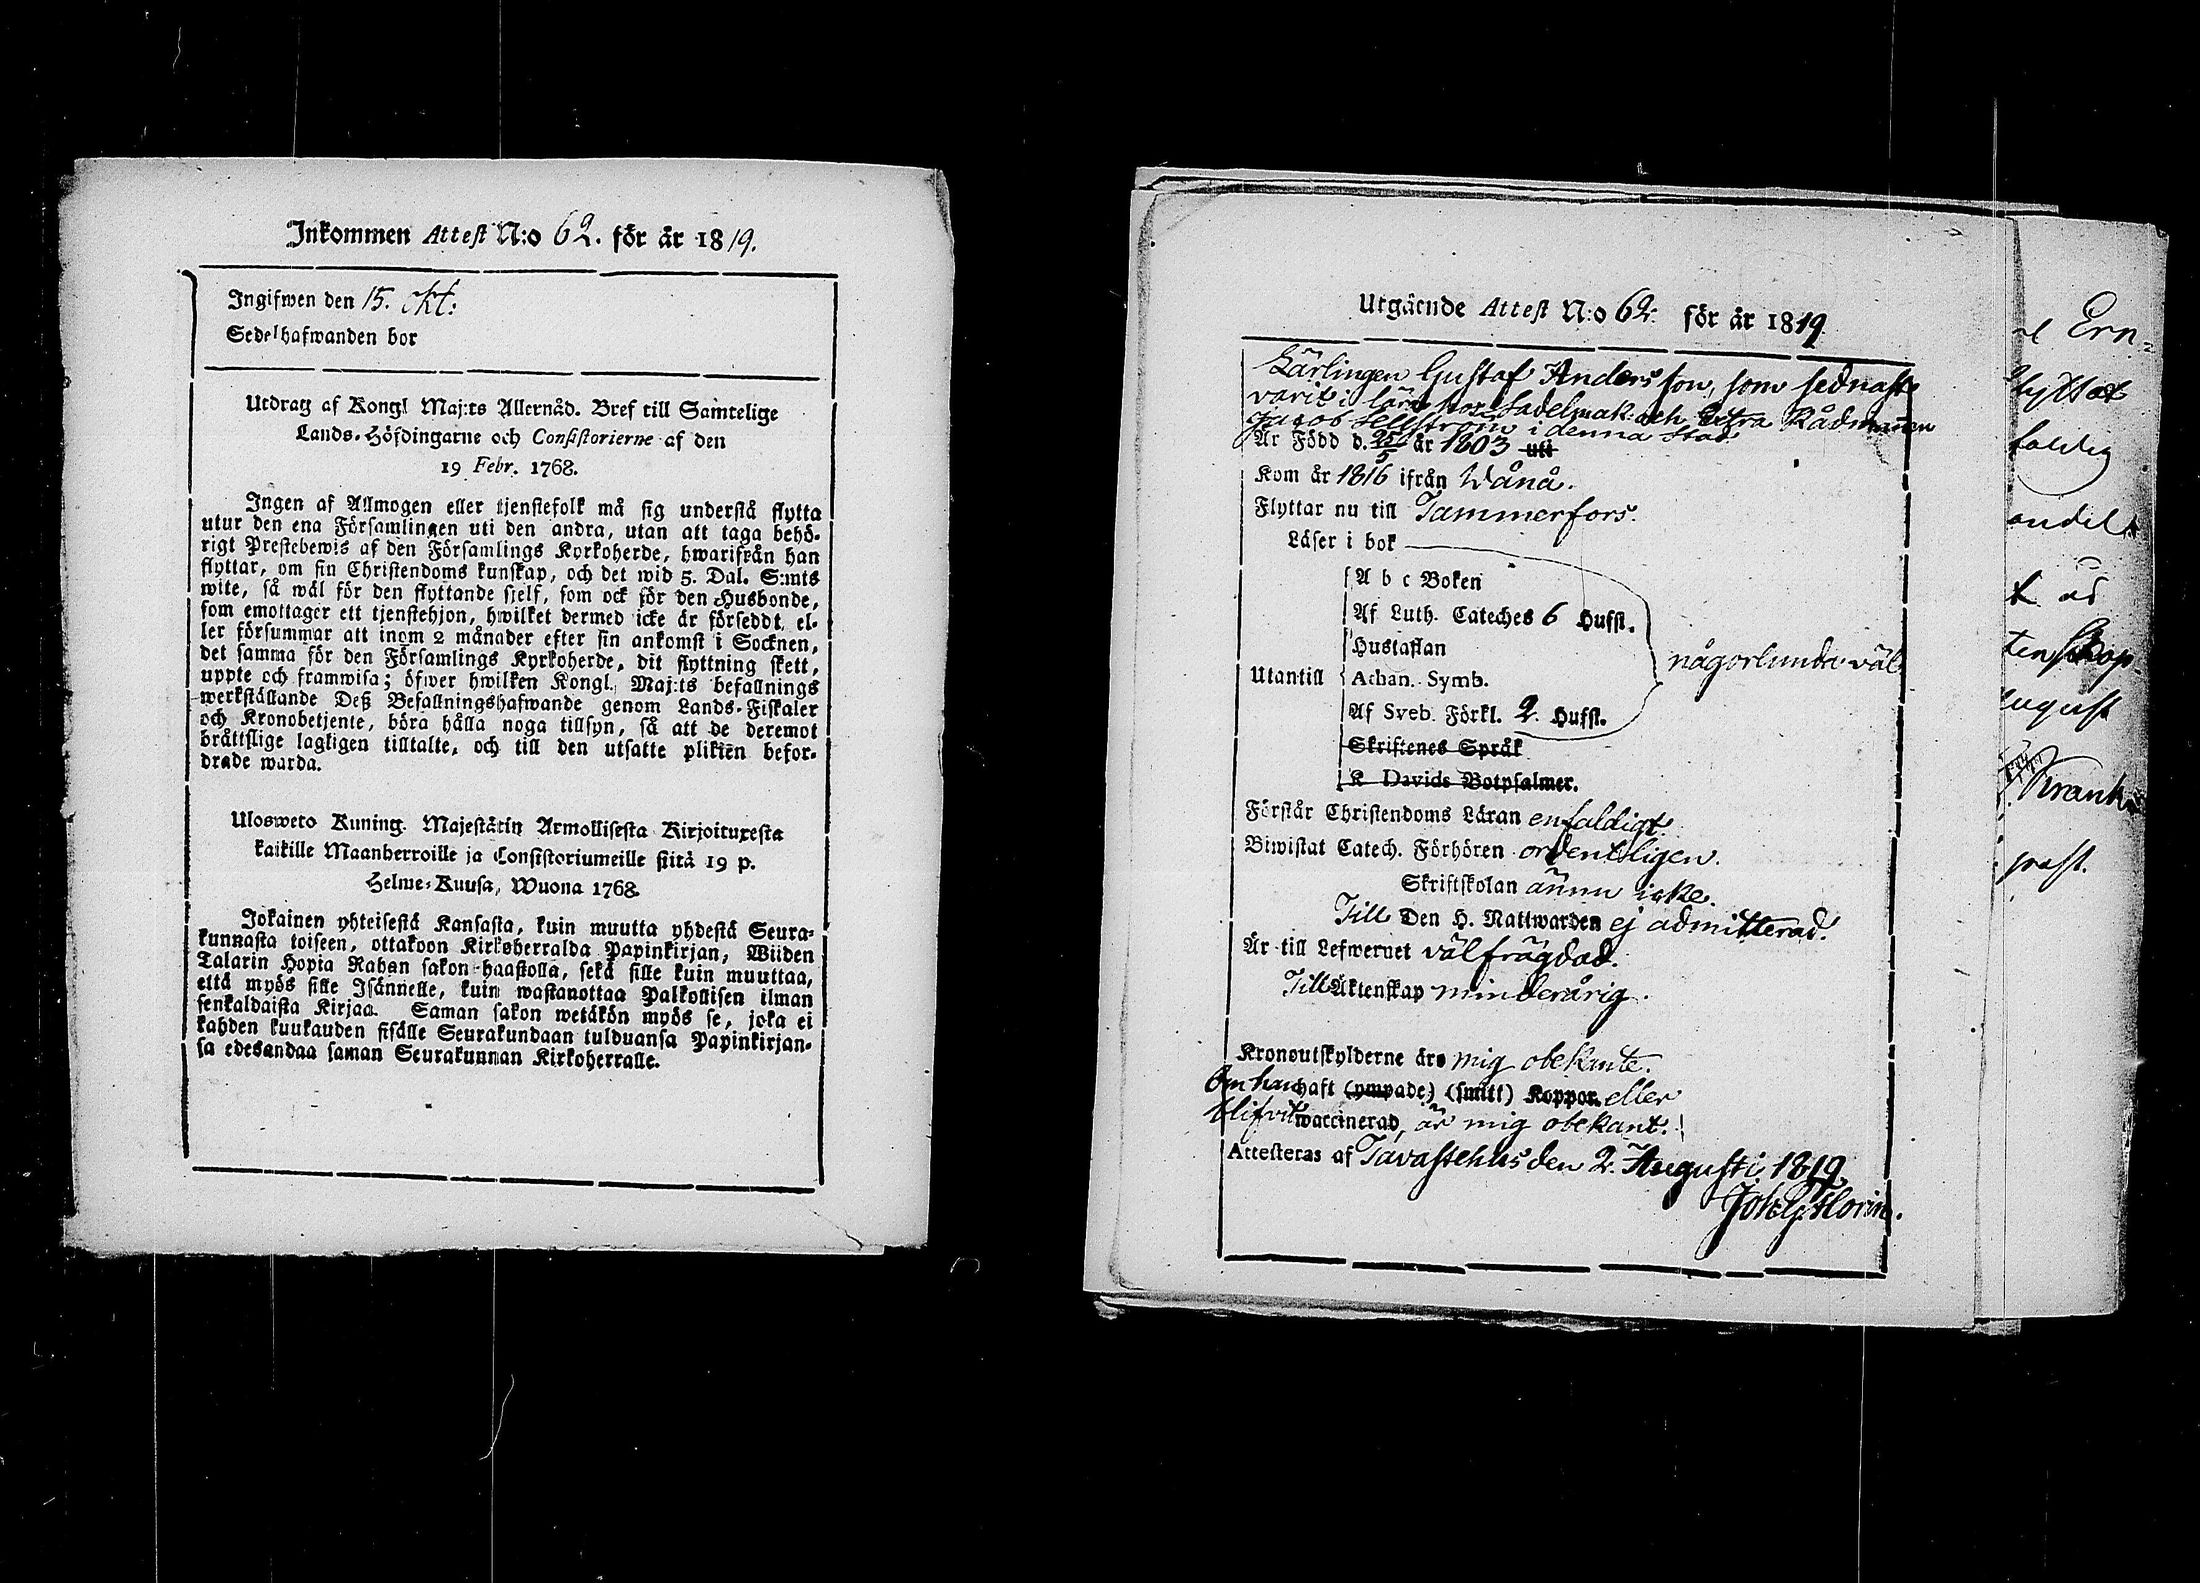 Inkommen Attest N:o 62. för år 1819.
Ingifwen den 15. Okt:
Sedelhafwanden bor
Utdrag af Kongl Maj:ts Allernåd. Bref till Samtelige
Lands-Höfdingarne och Consistorierne af den
19 Febr. 1768.
Ingen af Allmogen eller tjenstefolk må sig understå flytta
utur den ena Församlingen uti den andra, utan att taga behö-
rigt Prestebewis af den Församlings Kyrkoherde, hwarifrån han
flyttar, om sin Christendoms kunskap, och det wid 5. Dal. S:mts
wite, så wäl för den flyttande sjelf, som ock för den Husbonde,
som emottager ett tjenstehjon, hwilket dermed icke är försedt, el-
ler försummar att inom 2 månader efter sin ankomst i Socknen,
det samma för den Församlings Kyrkoherde, dit flyttning skett,
uppte och framwisa; öfwer hwilken Kongl. Maj:ts befallnings
werkställande Deß Befallningshafwande genom Lands-Fiskaler
och Kronobetjente, böra hålla noga tillsyn, så att de deremot
bråttslige lagligen tilltalte, och till den utsatte plikten befor-
drade warda.
Ulosweto Kuning. Majestätin Armollisesta Kirjoituxesta
kaikille Maanherroille ja Consistoriumeille siitä 19 p.
Helme-Kuusa, Wuona 1768.
Jokainen yhteisestä Kansasta, kuin muutta yhdestä Seura-
kunnasta toiseen, ottakoon Kirkoherralda Papinkirjan, Wiiden
Talarin Hopia Rahan sakon haastolla, sekä sille kuin muuttaa,
että myös sille Isännelle, kuin wastanottaa Palkollisen ilman
senkaldaista Kirjaa. Saman sakon wetäkön myös se, joka ei
kahden kuukauden sisälle Seurakundaan tulduansa Papinkirjan-
sa edesandaa saman Seurakunnan Kirkoherralle.
Utgående Attest N:o 62. för år 1819
Lärlingen Gustaf Andersson, som sednast
varit i lära hos Sadelmak: och Extra Rådmannen
Jacob Hellström i denna Stad
Är Född d. 25/5 år 1803 uti
Kom år 1816 ifrån Wånå.
Flyttar nu till Tammerfors.
Läser i bok
A b c Boken
Af Luth. Cateches 6 Hufst.
Hustaflan
någorlunda väl
Utantill Athan. Symb.
Af Sveb. Förkl. 2. Hufst.
Skriftenes Språk
K Davids Botpsalmer.
Förstår Christendoms Läran enfaldigt.
Biwistat Catech. Förhören ordentligen.
Skriftskolan ännu icke.
Till Den H. Nattwarden ej admitterad.
Är till Lefwernet välfrägdad.
Till Äktenskap minderårig.
Kronoutskylderne äro mig obekante.
Om han haft (ympade) (smitt) Koppor eller
blifvit waccinerad, är mig obekant.
Attesteras af Tavastehus den 2. Augusti 1819
Joh. G. Florin.
Ern-
flyttat
faldig
andel
t ad
tenskap
August
Krank
past.